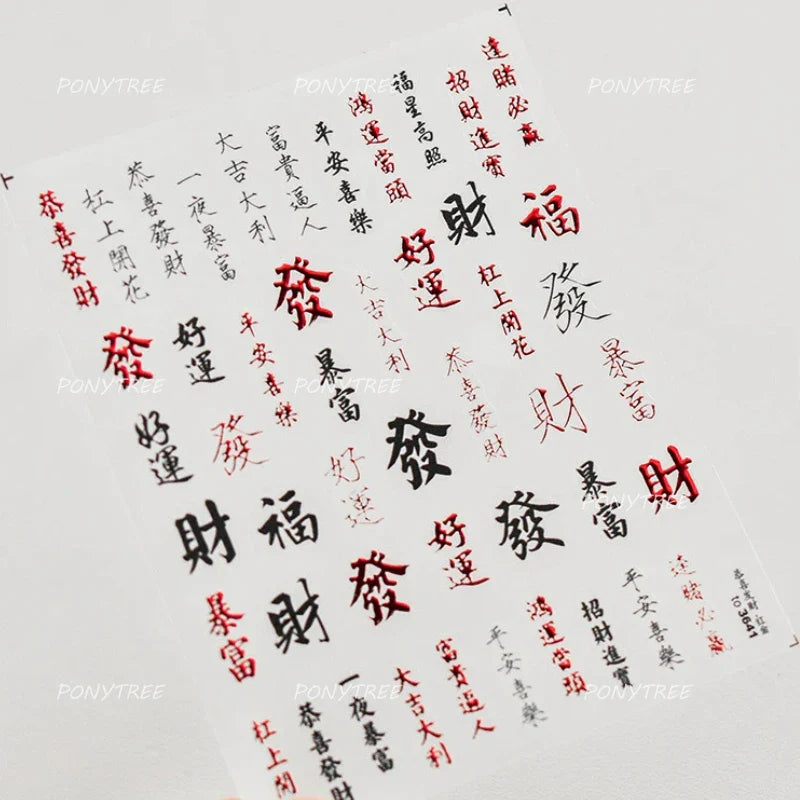 PONYTREE
PONYTREE
PONYTREE
恭喜發財
杠上開花
恭喜發財
一夜暴富
大吉大利
富貴逼人
平安喜樂
鴻運當頭
福星高照
招財進寶
逢賭必贏
發
好運
平安喜樂
發
大吉大利
好運
財
福
杠上開花
發
暴富
恭喜發財
財
暴富
PONYTREE
PONYTREE
PONYTREE
好運
發
好運
發
財
福
發
好運
發
暴富
財
暴富
財
杠上開
恭喜發財
一夜暴富
大吉大利
富貴逼人
平安喜樂
鴻運當頭
招財進寶
平安喜樂
逢賭必贏
恭喜发财
TO 3641
PONYTREE
PONYTREE
PONYTREE